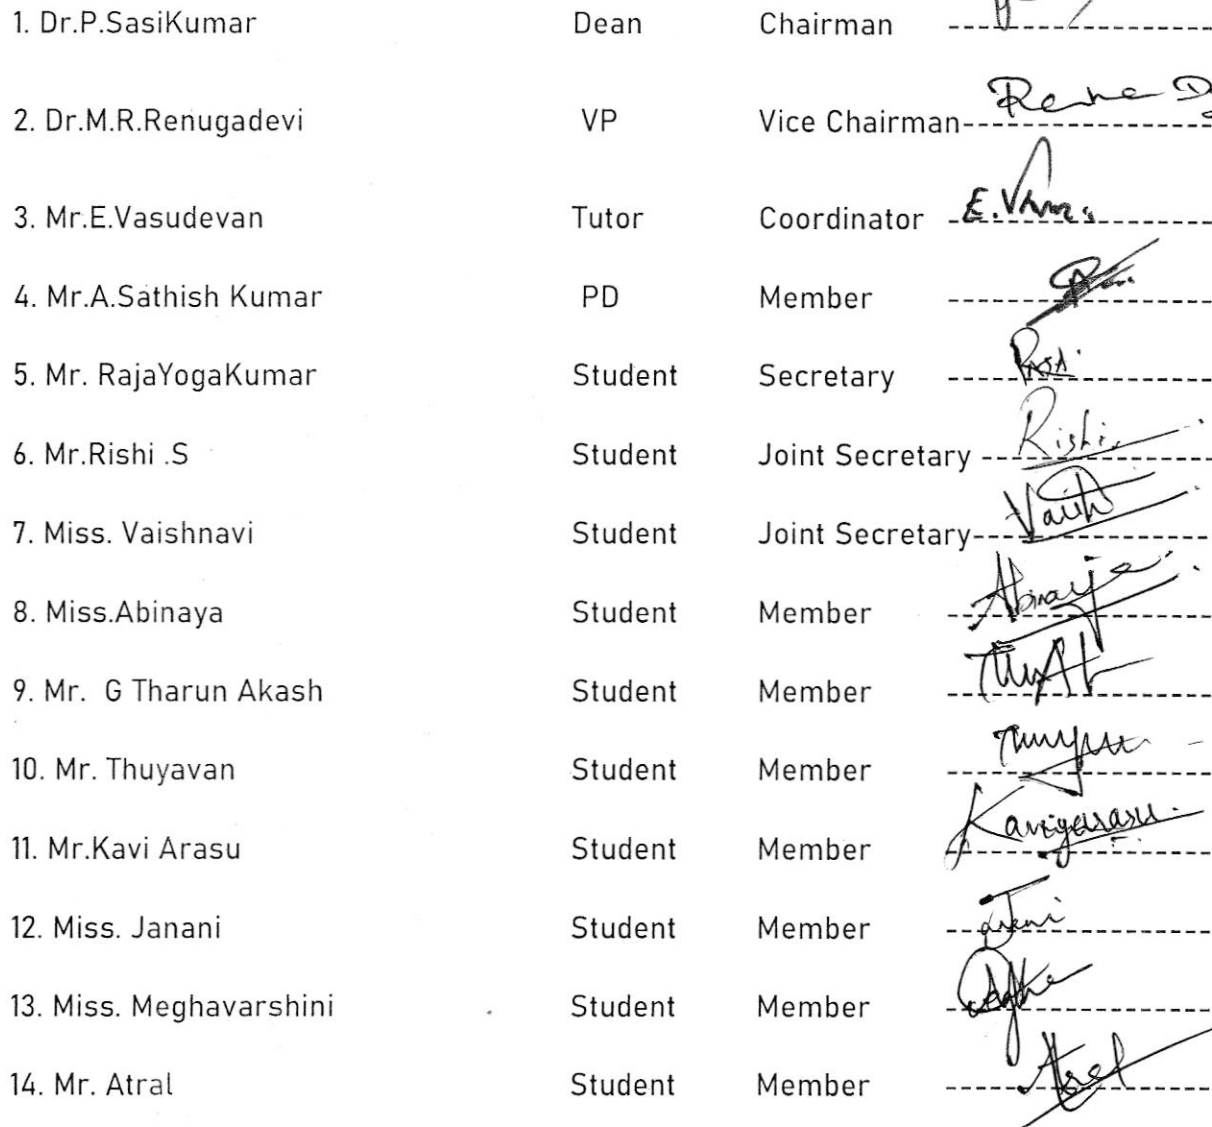 1. Dr.P.SasiKumar Dean Chairman
2. Dr.M.R.Renugadevi VP Vice Chairman
3. Mr.E.Vasudevan Tutor Coordinator
4. Mr.A.Sathish Kumar PD Member
5. Mr. RajaYogaKumar Student Secretary
6. Mr.Rishi .S Student Joint Secretary Rishi
7. Miss. Vaishnavi Student Joint Secretary
8. Miss.Abinaya Student Member Abinaya
9. Mr. G Tharun Akash Student Member
10. Mr. Thuyavan Student Member
11. Mr.Kavi Arasu Student Member
12. Miss. Janani Student Member
13. Miss. Meghavarshini Student Member
14. Mr. Atral Student Member